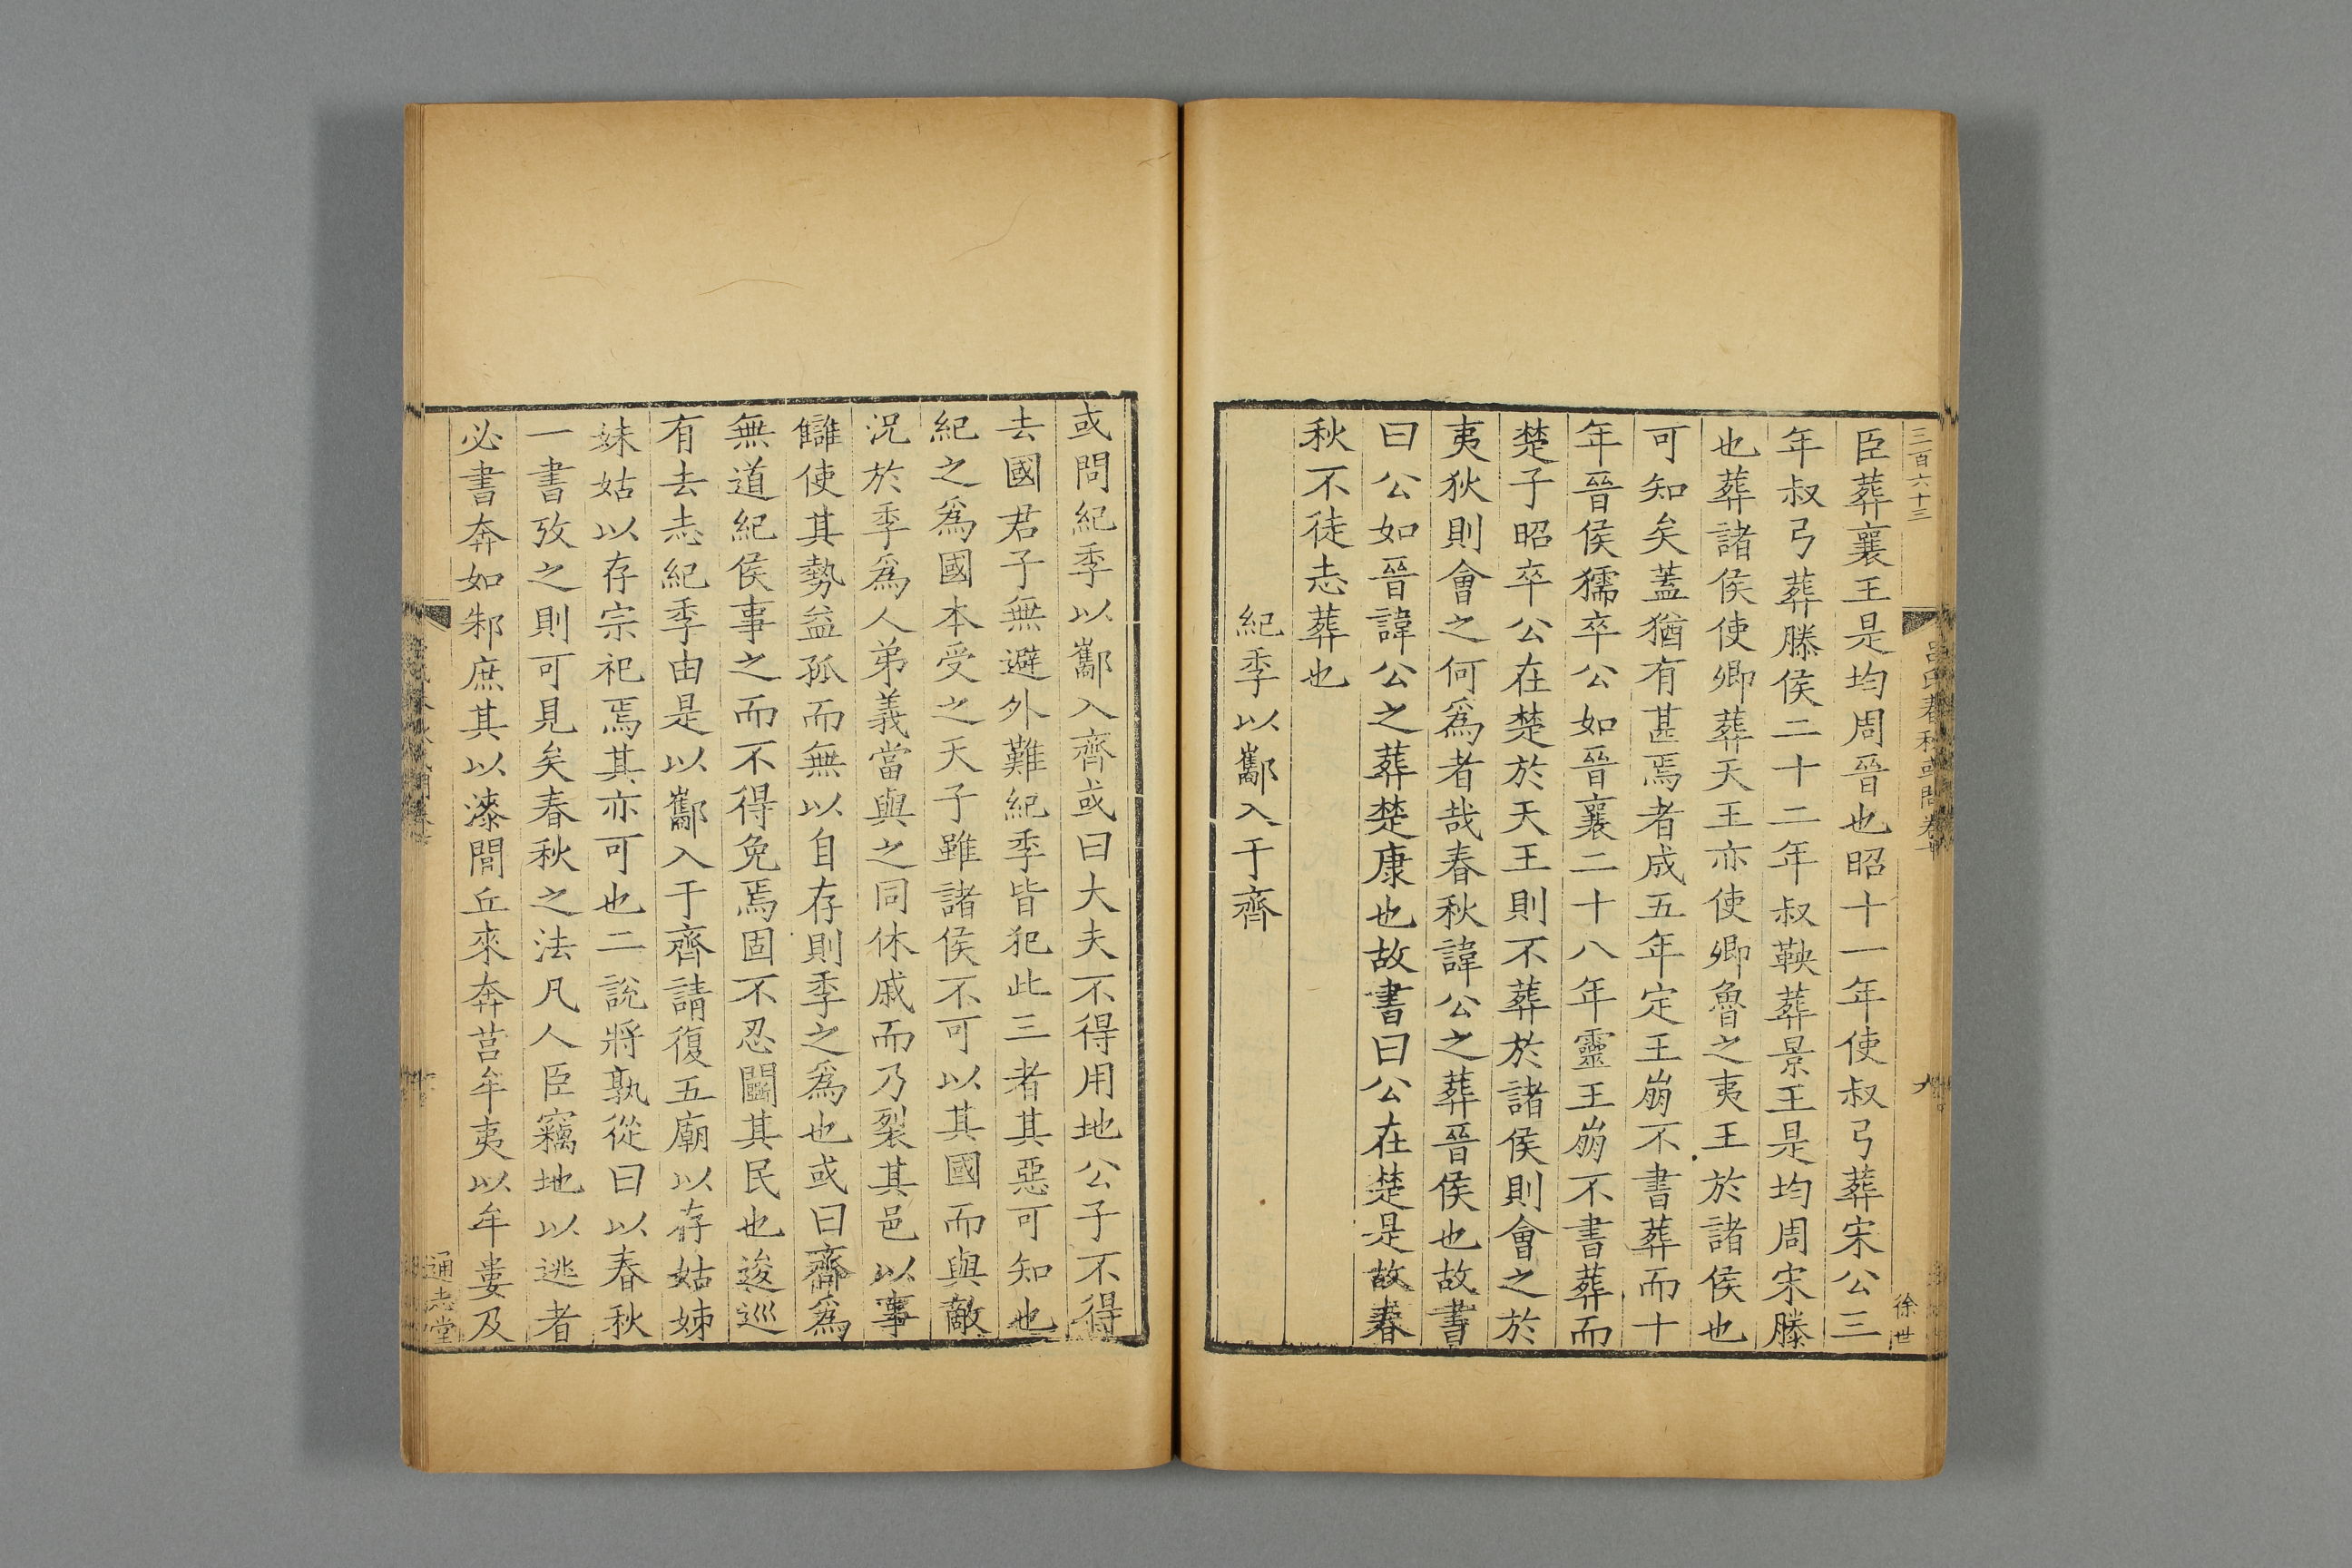 三百六十三
呂氏春秋或問卷
徐世
臣葬襄王是均周晉也昭十一年使叔弓葬宋公三
年叔弓葬滕侯二十二年叔鞅葬景王是均周宋滕
也葬諸侯使卿葬天王亦使卿魯之夷王於諸侯也
可知矣蓋猶有甚焉者成五年定王崩不書葬而十
年晉侯獳卒公如晉襄二十八年靈王崩不書葬而
楚子昭卒公在楚於天王則不葬於諸侯則會之於
夷狄則會之何爲者哉春秋諱公之葬晉侯也故書
曰公如晉諱公之葬楚康也故書曰公在楚是故春
秋不徒志葬也
紀季以酅入于齊
或問紀季以酅入齊或曰大夫不得用地公子不得
去國君子無避外難紀季皆犯此三者其惡可知也
紀之爲國本受之天子雖諸侯不可以其國而與敵
況於季爲人弟義當與之同休戚而乃裂其邑以事
讎使其勢益孤而無以自存則季之爲也或曰齊爲
無道紀侯事之而不得免焉固不忍鬪其民也逡巡
有去志紀季由是以酅入于齊請復五廟以存姑姊
妹姑以存宗祀焉其亦可也二說將孰從曰以春秋
一書攷之則可見矣春秋之法凡人臣竊地以逃者
必書奔如邾庶其以漆閭丘來奔莒牟夷以牟婁及
通志堂